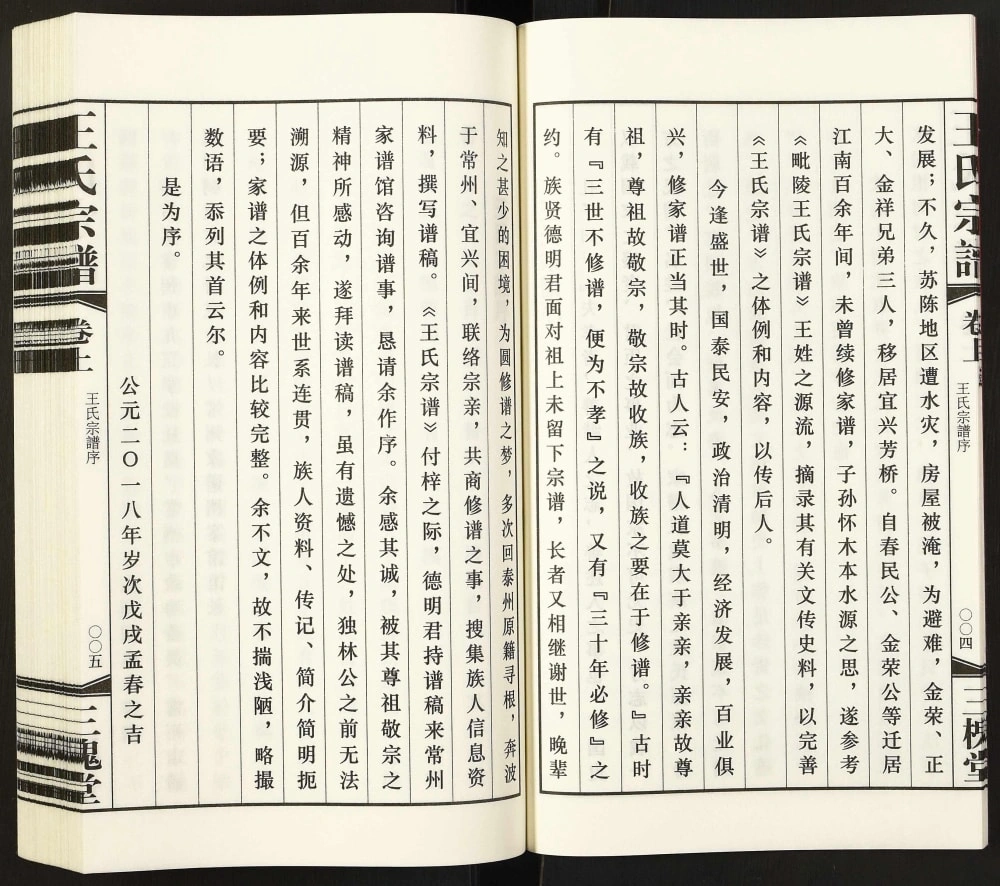 王氏宗譜
卷上
王氏宗譜序
〇〇四
三槐堂
发展；不久，苏陈地区遭水灾，房屋被淹，为避难，金荣、正
大、金祥兄弟三人，移居宜兴芳桥。自春民公、金荣公等迁居
江南百余年间，未曾续修家谱，子孙怀木本水源之思，遂参考
《毗陵王氏宗谱》王姓之源流，摘录其有关文传史料，以完善
《王氏宗谱》之体例和内容，以传后人。
今逢盛世，国泰民安，政治清明，经济发展，百业俱
兴，修家谱正当其时。古人云：『人道莫大于亲亲，亲亲故尊
祖，尊祖故敬宗，敬宗故收族，收族之要在于修谱。』古时
有『三世不修谱，便为不孝』之说，又有『三十年必修』之
约。族贤德明君面对祖上未留下宗谱，长者又相继谢世，晚辈
知之甚少的困境，为圆修谱之梦，多次回泰州原籍寻根，奔波
于常州、宜兴间，联络宗亲，共商修谱之事，搜集族人信息资
料，撰写谱稿。《王氏宗谱》付梓之际，德明君持谱稿来常州
家谱馆咨询谱事，恳请余作序。余感其诚，被其尊祖敬宗之
精神所感动，遂拜读谱稿，虽有遗憾之处，独林公之前无法
溯源，但百余年来世系连贯，族人资料、传记、简介简明扼
要；家谱之体例和内容比较完整。余不文，故不揣浅陋，略撮
数语，忝列其首云尔。
是为序。
公元二〇一八年岁次戊戌孟春之吉
王氏宗譜
卷上
王氏宗譜序
〇〇五
三槐堂